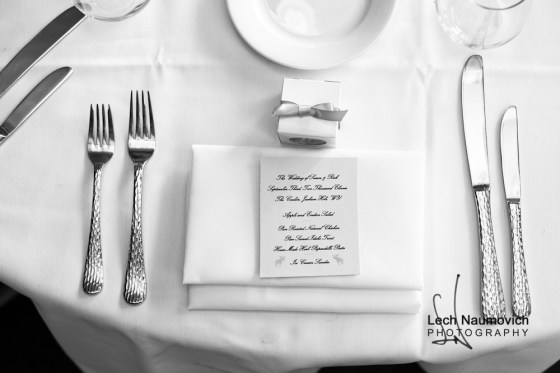 The Wedding of Susan & Rich
September Third Two Thousand Eleven
The Couloir, Jackson Hole, WY
Apple and Endive Salad
Pan Roasted Natural Chicken
Pan Seared Idaho Trout
House Made Hand Pappardelle Pasta
Ice Cream Sundae
Lech Naumovich
PHOTOGRAPHY